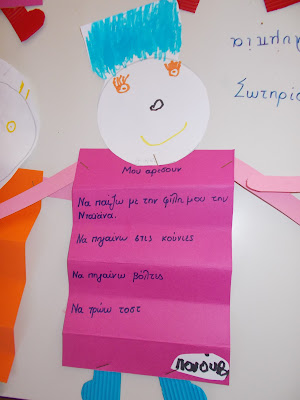 μπία
Σωτηρία
Μου αρέσουν
Να παίζω με την φίλη μου την
Νταϊάνα.
Να πηγαίνω στις κούνιες
Να πηγαίνω βόλτες
Να τρώω τοστ